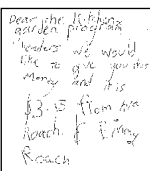 Dear the Kitchen
garden program
leaders we would
like to give you this
money and it is
$3.15 from his
Roach & Limey
Roach